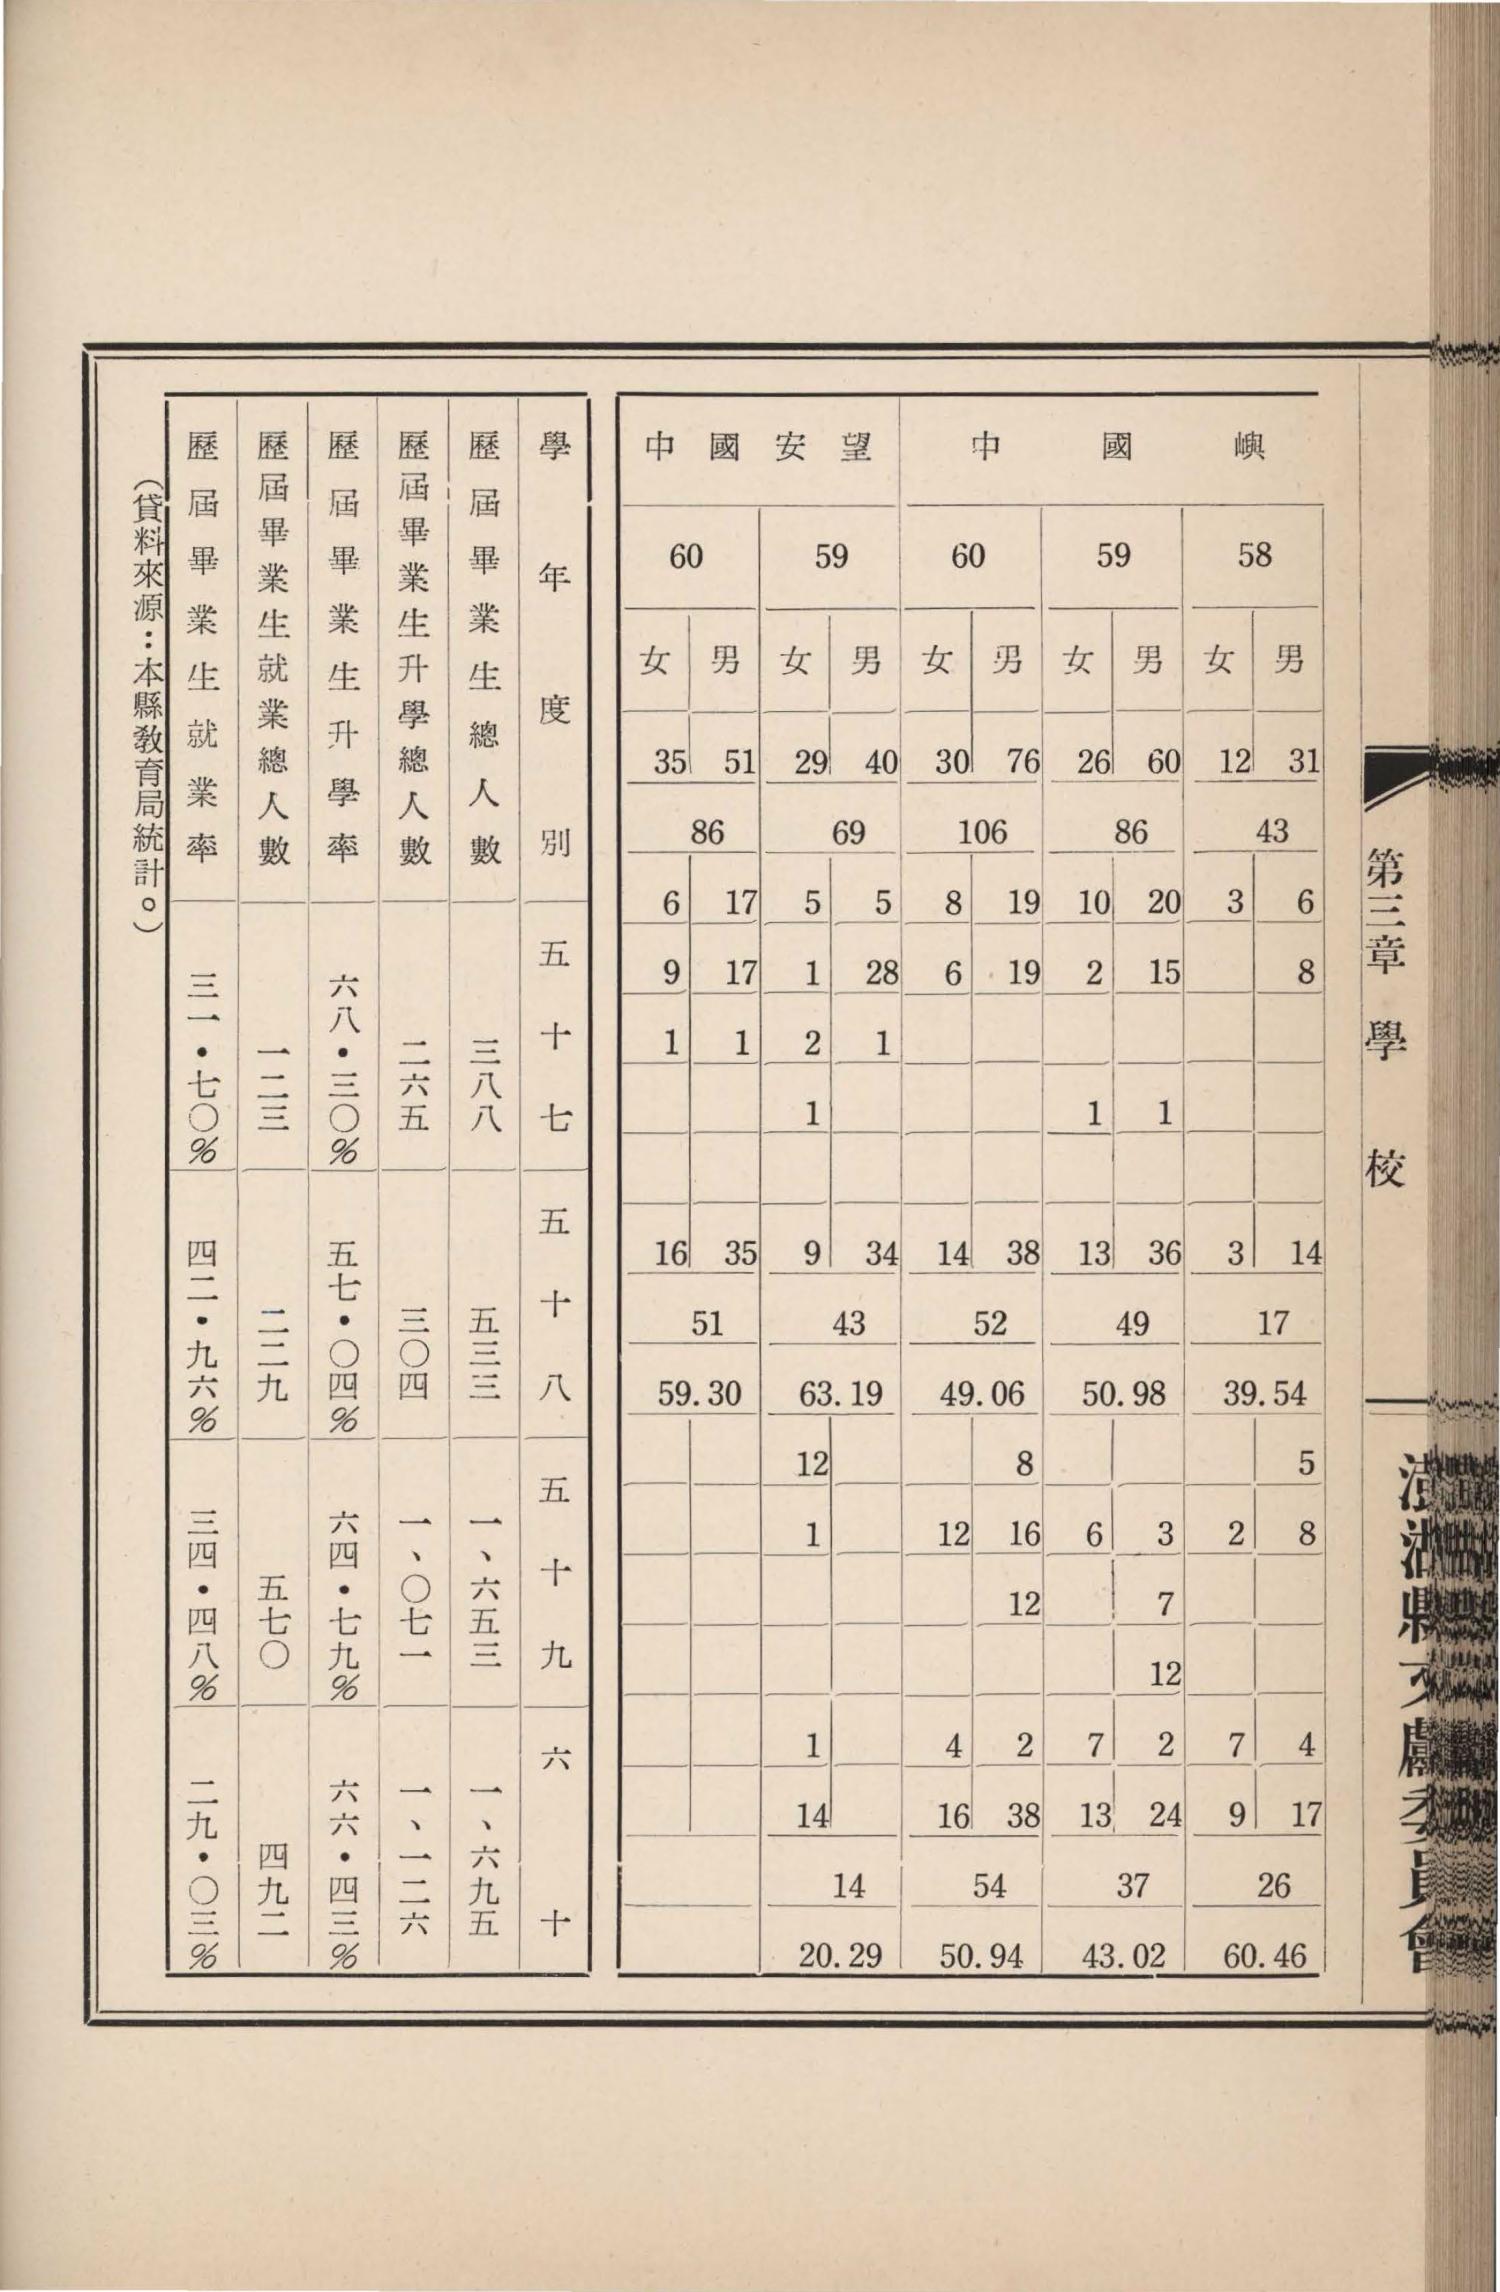 第三章 學 校
澎湖縣文獻委員會
嶼國中 望安國中
58 59 60 59 60
男 女 男 女 男 女 男 女 男 女
31 12 60 26 76 30 40 29 51 35
43 86 106 69 86
6 3 20 10 19 8 5 5 17 6
8 15 2 19 6 28 1 17 9
1 2 1 1
1 1 1
14 3 36 13 38 14 34 9 35 16
17 49 52 43 51
39.54 50.98 49.06 63.19 59.30
5 8 12
8 2 3 6 16 12 1
7 12
12
4 7 2 7 2 4 1
17 9 24 13 38 16 14
26 37 54 14
60.46 43.02 50.94 20.29
學年度別 五十七 五十八 五十九 六十
歷屆畢業生總人數 三八八 五三三 一、六五三 一、六九五
歷屆畢業生升學總人數 二六五 三〇四 一、〇七一 一、一二六
歷屆畢業生升學率 六八・三〇% 五七・〇四% 六四・七九% 六六・四三%
歷屆畢業生就業總人數 一二三 二二九 五七〇 四九二
歷屆畢業生就業率 三一・七〇% 四二・九六% 三四・四八% 二九・〇三%
（貸料來源：本縣教育局統計。）